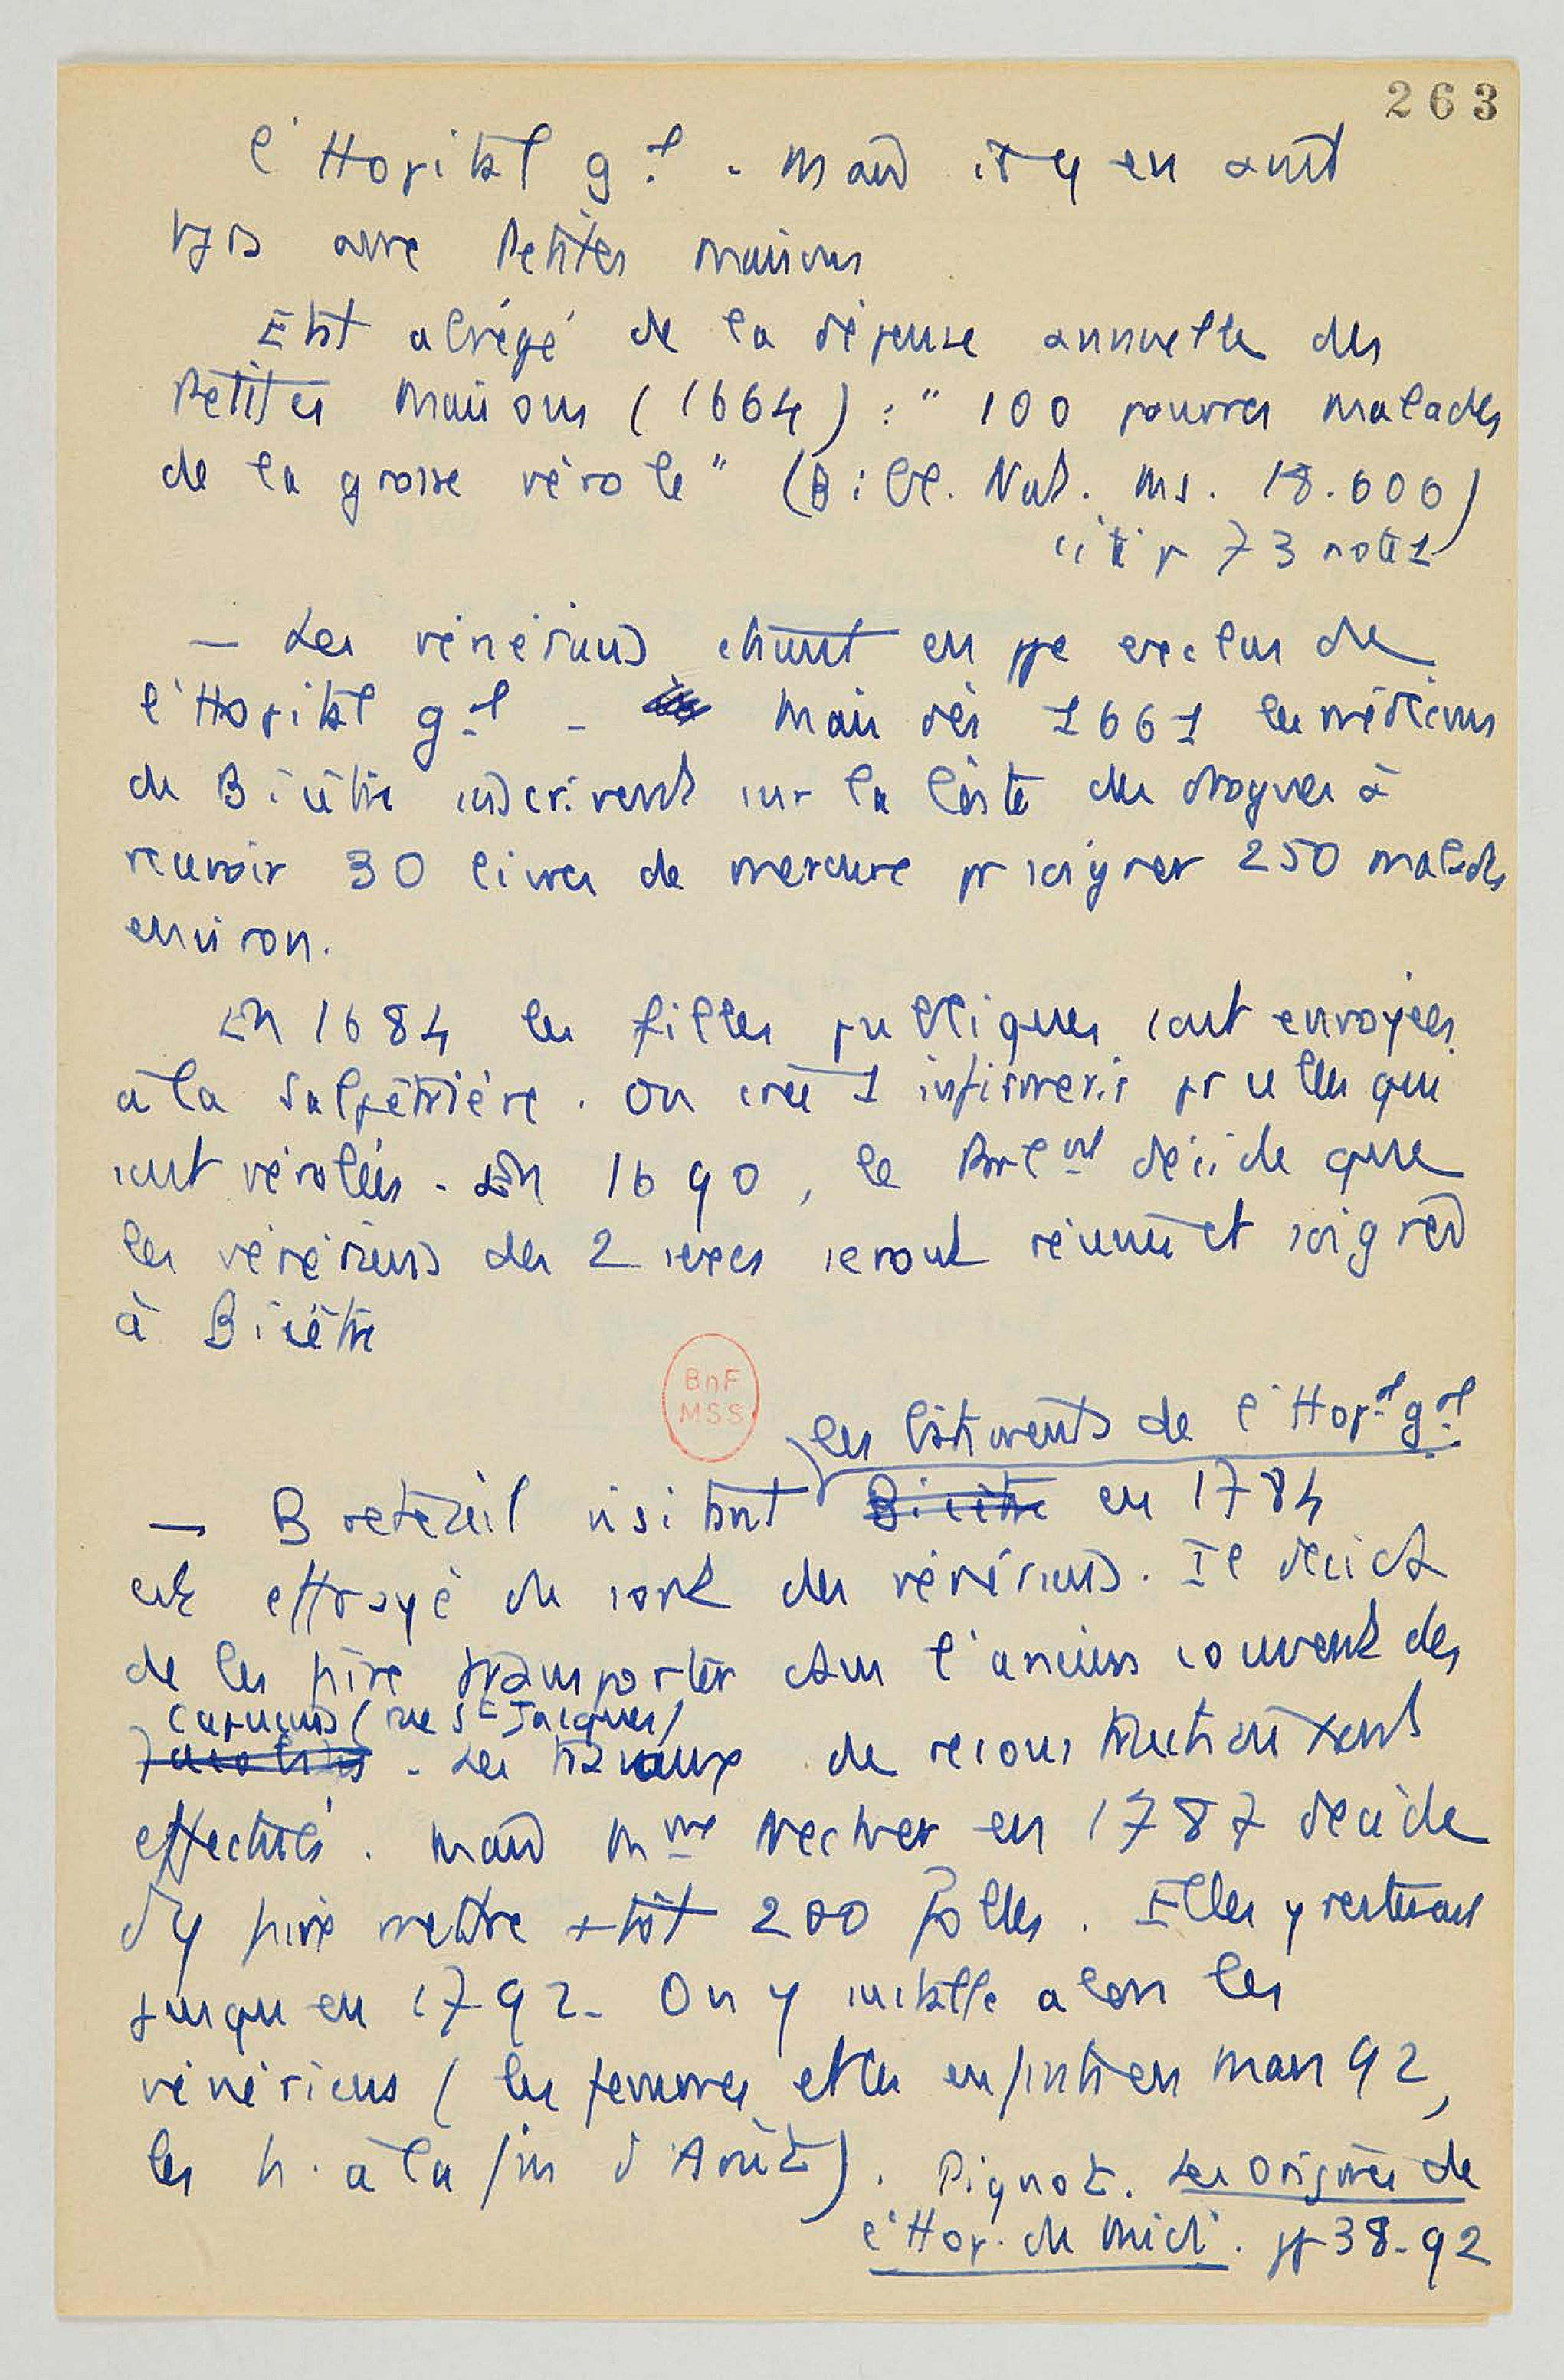 263
l'Hopital gal. Mais il y en avait
tjs aux Petites Maisons
Etat abrégé de la dépense annuelle des
Petites Maisons (1664) : " 100 pauvres malades
de la grosse vérole " (Bibl. Nat. ms. 18.606)
cité p 73 note 1
— Les vénériens étaient en ppe exclus de
l'Hopital gal - Mais dès 1661 les médecins
de Bicêtre inscrivent sur la liste des drogues à
recevoir 30 livres de mercure pr soigner 250 malades
environ.
En 1684 les filles publiques sont envoyées
à la Salpêtrière. On crée 1 infirmerie pr celles qui
sont vérolées. En 1690, le Parlent décide que
les vénériens des 2 sexes seront réunis et soignés
à Bicêtre
BnF
MSS
les bâtiments de l'Hopal gal
— Breteuil visitant Bicêtre en 1784
est effrayé du sort des vénériens. Il décide
de les faire transporter dans l'ancien couvent des
Capucins (rue St Jacques)
. Les travaux de reconstruction sont
effectués. Mais Mme Necker en 1787 décide
d'y faire mettre + tôt 200 folles. Elles y resteront
jusqu'en 1792. On y installe alors les
vénériens (les femmes et les enfants en Mars 92,
les h. à la fin d'Août). Pignot. Les Origines de
l'Hop. du Midi. pp 38-92